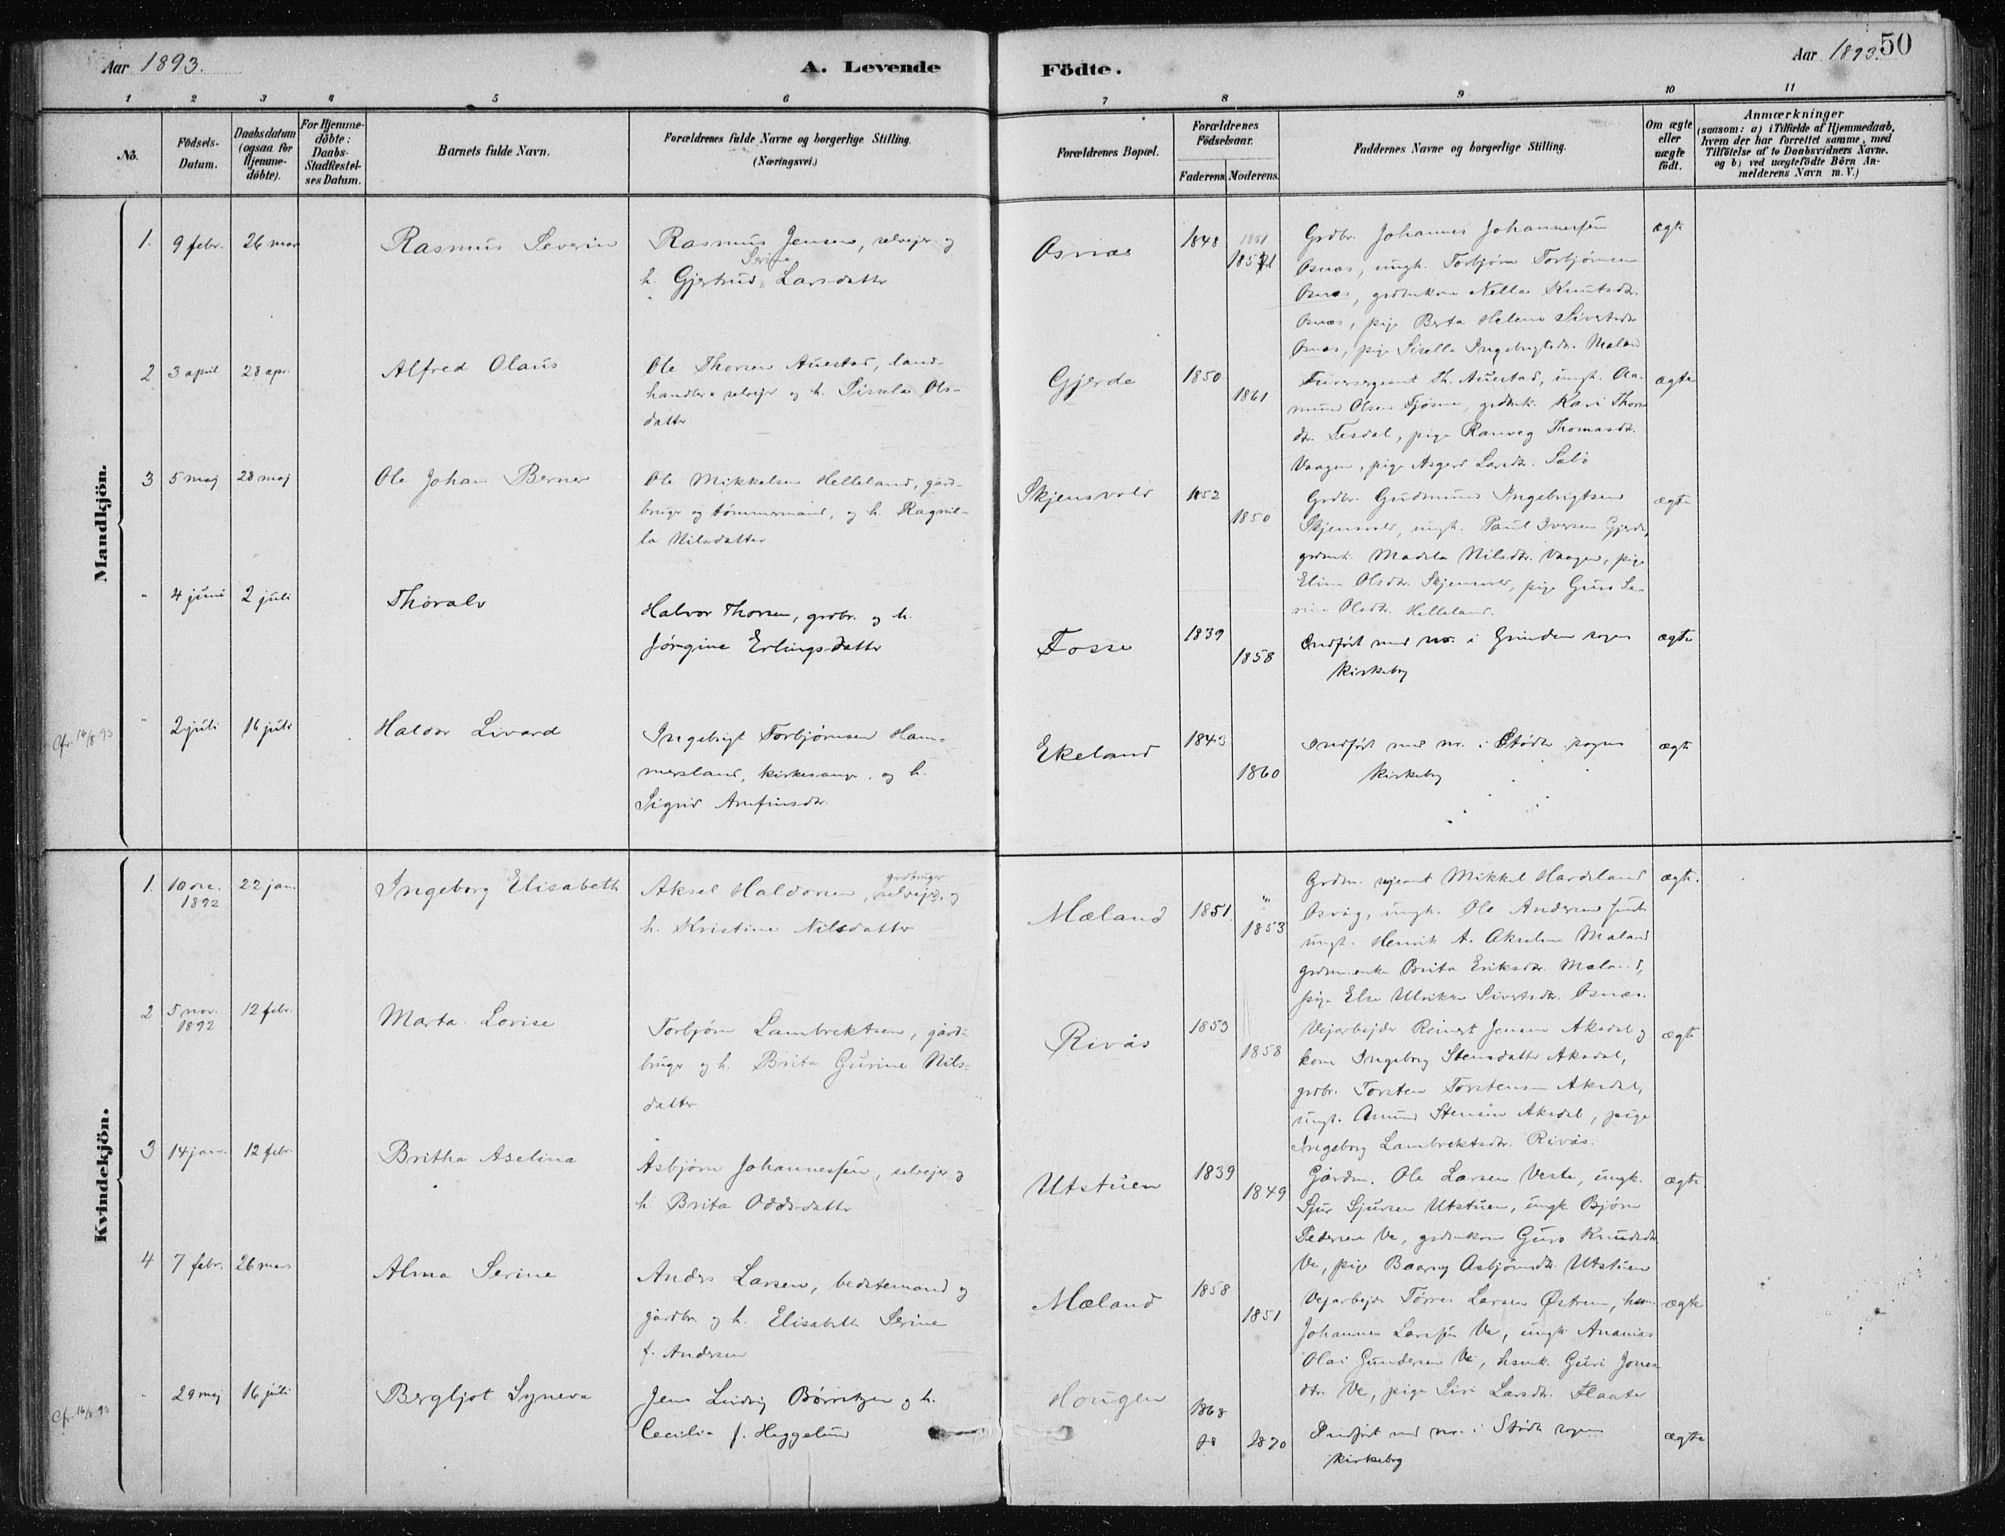 Aar 1893.
A. Levende
Födte.
Aar 1893.
50
1 2 3 4 5 6 7 8 9 10 11
No.
Födsels-
Datum.
Daabsdatum
(ogsaa for
Hjemme-
döbte).
For Hjemme-
döbte:
Daabs-
Stadfæstel-
ses Datum.
Barnets fulde Navn.
Forældrenes fulde Navne og borgerlige Stilling.
(Næringsvei.)
Forældrenes Bopæl.
Forældrenes
Födselsaar.
Faderens. Moderens.
Faddernes Navne og borgerlige Stilling.
Om ægte
eller
uægte
födt.
Anmærkninger
(saasom: a) i Tilfælde af Hjemmedaab,
hvem der har forrettet samme, med
Tilföielse af to Daabsvidners Navne,
og b) ved uægtefödte Börn An-
melderens Navn m. V.)
Mandkjön.
1. 9 febr. 26 mar
Rasmus Severin
Rasmus Jensen, selvejer og
Serine
h. Gjertrud Larsdatter
Osnæs
1848
1861
Grdbr. Johannes Johannesen
Osnæs, ungk. Torbjørn Torbjørnsen
Osnæs, grdmkone Nella Knutsdtr.
Osnæs, pige Berta Helene Sivertsdtr
Osnæs, pige Sisella Ingebrigtsdtr. Mæland
ægte
2 3 april 28 apr.
Alfred Olaus
Ole Thorsen Auestad, land-
handler & selvejer og h. Sissela Ols-
datter
Gjerde
1850
1861
Furersergeant Th. Auestad, ungk. Aa-
mund Olsen Fjøsne, grdmk. Kari Thors
dtr. Tesdal, pige Ranveg Thomasdtr.
Vaagen, pige Asgerd Larsdtr. Sæbø
ægte
3 5 maj 28 maj
Ole Johan Berner
Ole Mikkelsen Helleland, gård-
bruger og tømmermand, og h. Ragnil-
la Nilsdatter
Skjensvold
1852
1850
Grdbr. Gudmund Ingebrigtsen
Skjensvold, ungk. Paul Iversen Gjerde,
grdmk. Madela Nilsdtr. Vaagen, pige
Eline Olsdtr. Skjensvold, pige Guro Se-
rine Olsdtr. Helleland.
ægte
" 4 juni 2 juli
Thoralv
Halvor Thorsen, grdbr. og h.
Jørgine Erlingsdatter
Fosse
1839
1858
Indført med no. i Grinden sogns
kirkebog
ægte
Cfr. 16/8 93
" 2 juli 16 juli
Haldor Livard
Ingebrigt Torbjørnsen Ham-
mersland, kirkesanger, og h.
Sigrid Arnfinsdtr.
Ekeland
1843
1860
Indført med no. i Stødle sogns
kirkebog
ægte
Kvindekjön.
1. 10 dec. 22 jan.
1892
Ingeborg Elisabeth
gardbruger
Aksel Haldorsen, selvejer, og
h. Kristine Nilsdatter
Mæland
1851.
"
1853
Grdm. sergeant Mikkel Hardeland
Osvåg, ungk. Ole Andersen
ungk. Henrik A. Akselsen Mæland
grdmenke Brita Eriksdtr. Mæland,
pige Else Ulrikke Sivertsdtr. Osnæs.
ægte.
2 5 nov. 12 febr.
1892
Marta Lovise
Torbjørn Lambrektsen, gård-
bruger og h. Brita Gurine Nils-
datter
Rivås
1853
1858
Vejarbejder Reinert Jensen Aksdal og
kone Ingeborg Stensdatter Aksdal,
grdbr. Torsten Torstensen Aksdal,
ungk. Amund Stensen Aksdal, pige
Ingeborg Lambrektsdtr. Rivås.
ægte
3 14 jan. 12 febr.
Britha Aselina
Asbjørn Johannesen, selvejer og
h Brita Oddsdatter
Utstuen
1839
1849
Gårdm. Ole Larsen Veste, ungk.
Sjur Sjursen Utstuen, ungk Bjørn
Pedersen Ve, grdmkone Guro Knudsdtr
Ve, pige Baarny Asbjørnsdtr. Utstuen
ægte
4 7 febr. 26 mars
Alma Serine
Anders Larsen, bedstemand og
gårdbr. og h. Elisabeth Serine
f. Andersen
Mæland
1858
1851
Vejarbejder Tørres Larsen Østrem, hsm.
Johannes Larsen Ve, ungk. Ananias
Olai Gundersen Ve, hsmk. Guri Jones
dtr. Ve, pige Siri Larsdtr. Flaate
ægte
Cfr. 16/8 93
" 29 maj 16 juli
Bergljot Syneva
Jens Ludvig Børretzen og h.
Cecilie f. Heggelund
Hougen
1868
68
1870
Indført med no. i Stødle sogns
kirkebog
ægte